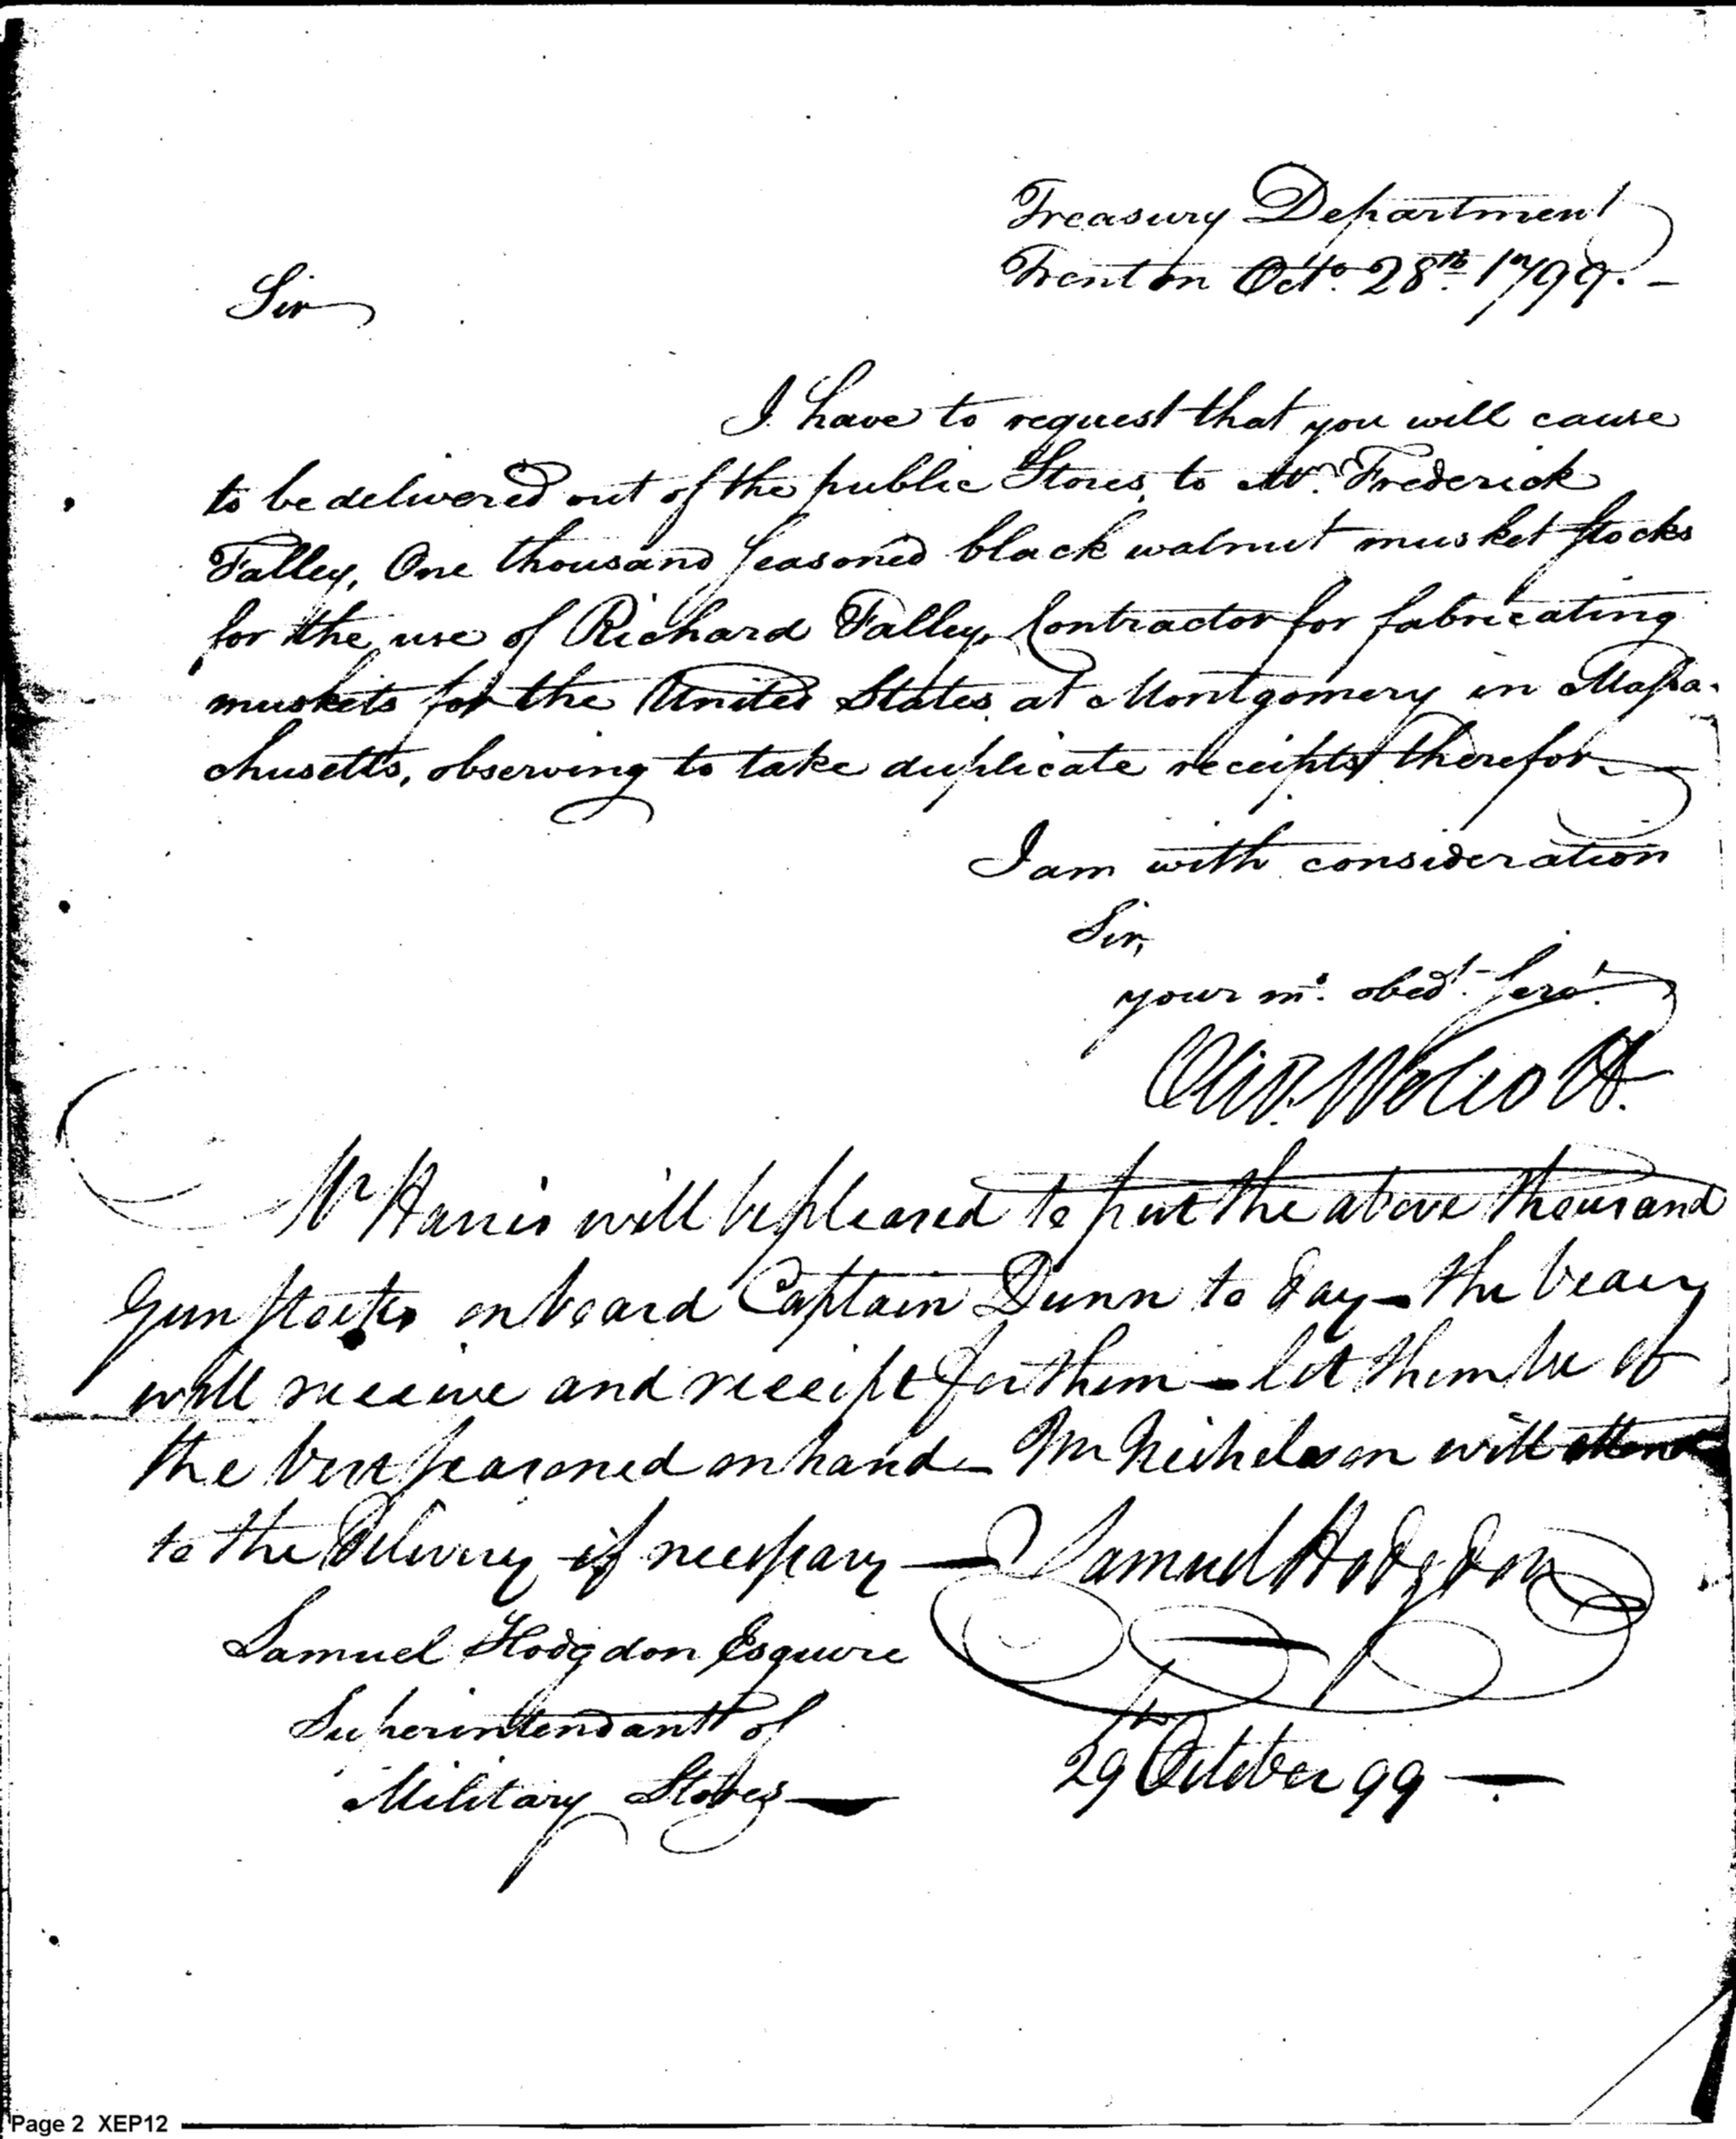 Treasury Department
Trenton Octo. 28th. 1799. -
Sir
I have to request that you will cause
to be delivered out of the public Stores, to Mr. Frederick
Falley, One thousand seasoned black walnut musket stocks
for the use of Richard Falley, Contractor for fabricating
muskets for the United States at Montgomery in Massa-
chusetts, observing to take duplicate receipts therefor.
I am with consideration
Sir,
your mo. obedt. servt.
Oliv. Wolcott.
Mr Harris will be pleased to put the above thousand
Gun stocks on board Captain Dunn to day - the bearer
will receive and receipt for them - let them be of
the best seasoned on hand - Mr Nicholson will attend
to the Delivery if necessary - Samuel Hodgdon
Samuel Hodgdon Esquire
Superintendant of
Military Stores
29th October 99 -
Page 2 XEP12